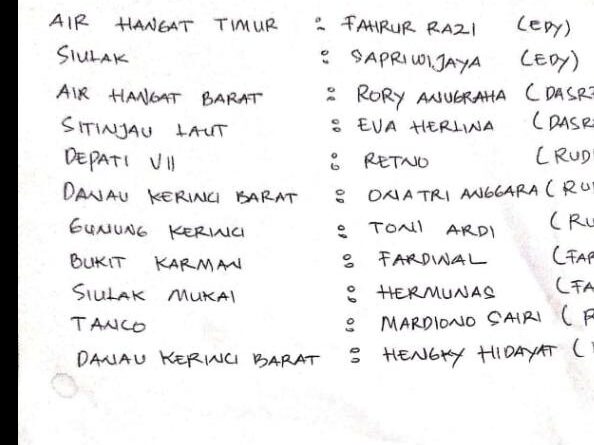 AIR HANGAT TIMUR : FAHRUR RAZI (EDY)
SIULAK : SAPRIWIJAYA (EDY)
AIR HANGAT BARAT : RORY ANUGRAHA (DASR
SITINJAU LAUT : EVA HERLINA (DASR
DEPATI VII : RETNO (RUD
DANAU KERINCI BARAT : ONATRI ANGGARA (RU
GUNUNG KERINCI : TONI ARDI (RU
BUKIT KARMAN : FARDINAL (FAR
SIULAK MUKAI : HERMUNAS (FA
TANCO : MARDIONO SAIRI (
DANAU KERINCI BARAT : HENGKY HIDAYAT (